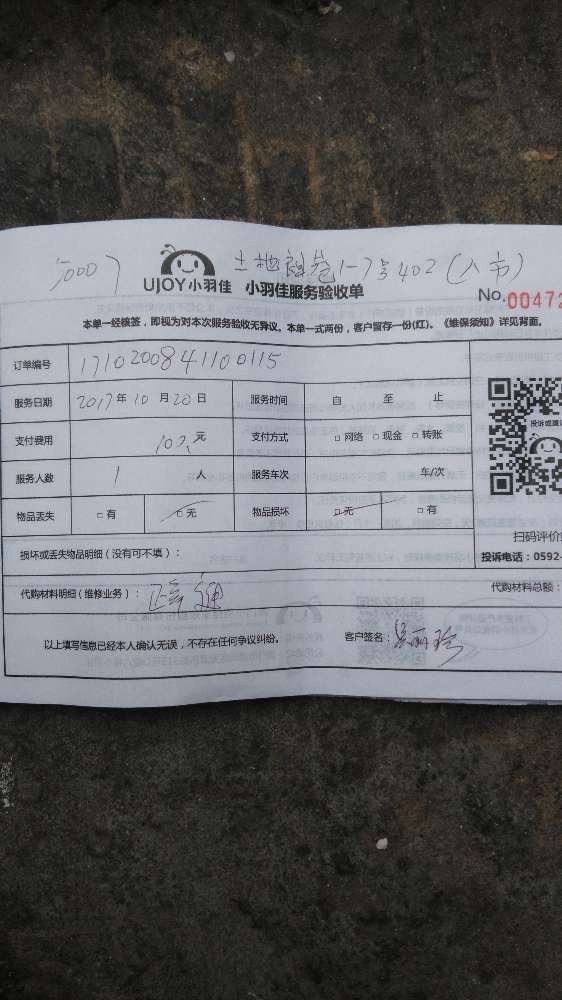 土地祖巷1-7号402(入户)
UJOY小羽佳 小羽佳服务验收单
No.00472
本单一经核签，即视为对本次服务验收无异议。本单一式两份，客户留存一份(红)。《维保须知》详见背面。
订单编号 1710200841100115
服务日期 2017年10月20日 服务时间 自 至 止
支付费用 100.元 支付方式 □网络 □现金 □转账
服务人数 1 人 服务车次 车/次
物品丢失 □有 □无 物品损坏 □无 □有
扫码评价
投诉电话：0592-
损坏或丢失物品明细（没有可不填）：
代购材料明细（维修业务）： 代购材料总额：
以上填写信息已经本人确认无误，不存在任何争议纠纷。 客户签名：